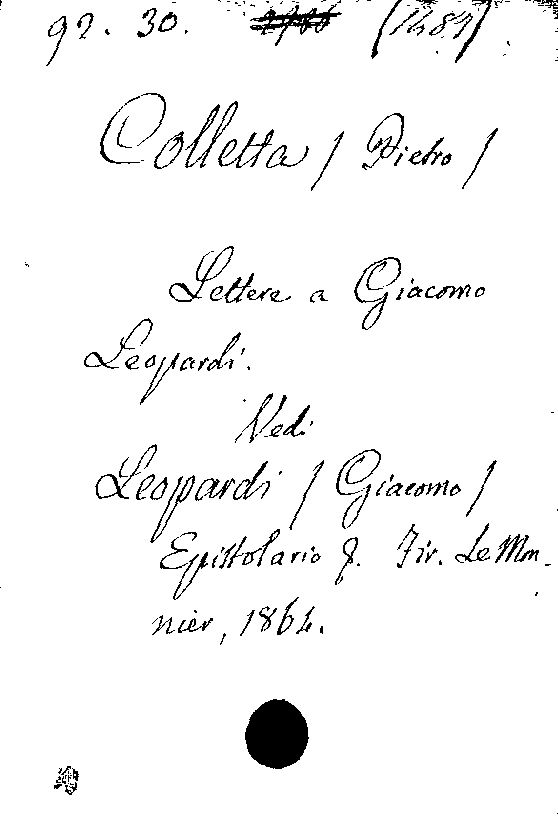 92. 30. (1489)
Colletta / Pietro /
Lettere a Giacomo
Leopardi.
Vedi
Leopardi / Giacomo /
Epistolario &. Fir. Le Mon-
nier, 1864.